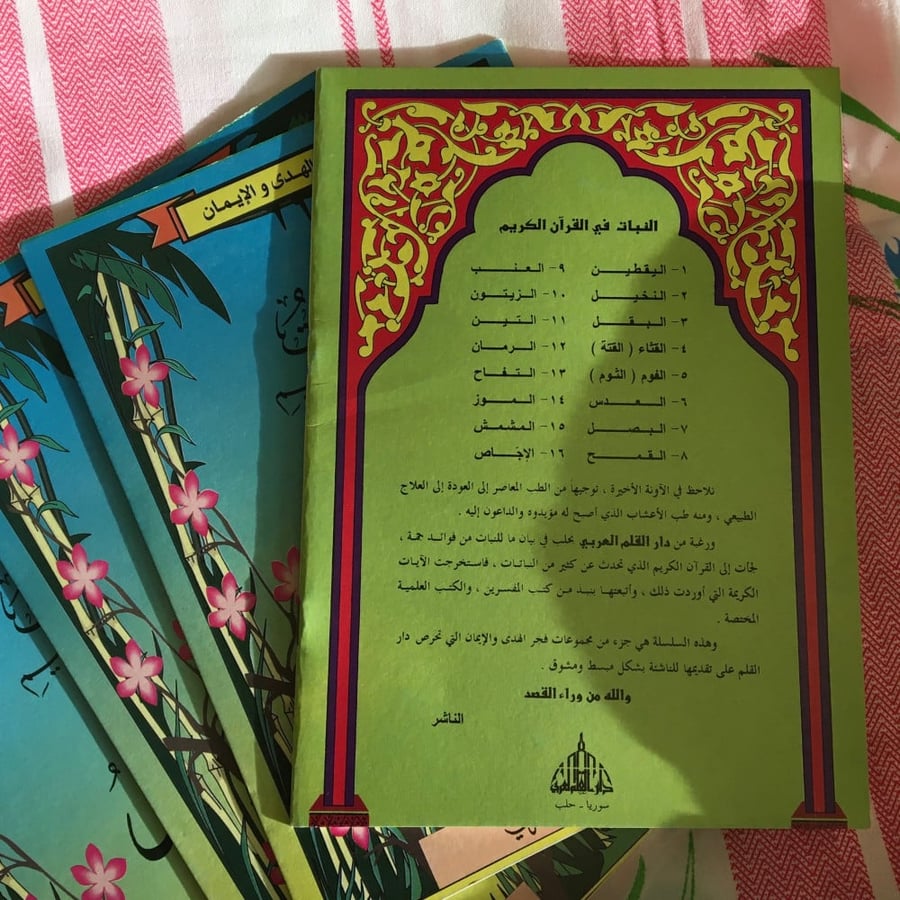 الهدى و الإيمان
النبات في القرآن الكريم
١- اليقطين ٩- العنب
٢- النخيل ١٠- الزيتون
٣- البقل ١١- التين
٤- القثاء ( القتة ) ١٢- الرمان
٥- الفوم ( الثوم ) ١٣- التفاح
٦- العدس ١٤- الموز
٧- البصل ١٥- المشمش
٨- القمح ١٦- الإجاص
نلاحظ في الآونة الأخيرة ، توجيهاً من الطب المعاصر إلى العودة إلى العلاج
الطبيعي ، ومنه طب الأعشاب الذي أصبح له مؤيدوه والداعون إليه .
ورغبة من دار القلم العربي بحلب في بيان ما للنبات من فوائد جمة ،
لجأت إلى القرآن الكريم الذي تحدث عن كثير من النباتات ، فاستخرجت الآيات
الكريمة التي أوردت ذلك ، وأتبعتها بنبذ من كتب المفسرين ، والكتب العلمية
المختصة .
وهذه السلسلة هي جزء من مجموعات فجر الهدى والإيمان التي تحرص دار
القلم على تقديمها للناشئة بشكل مبسط ومشوق .
والله من وراء القصد
الناشر
دار القلم العربي
سوريا - حلب